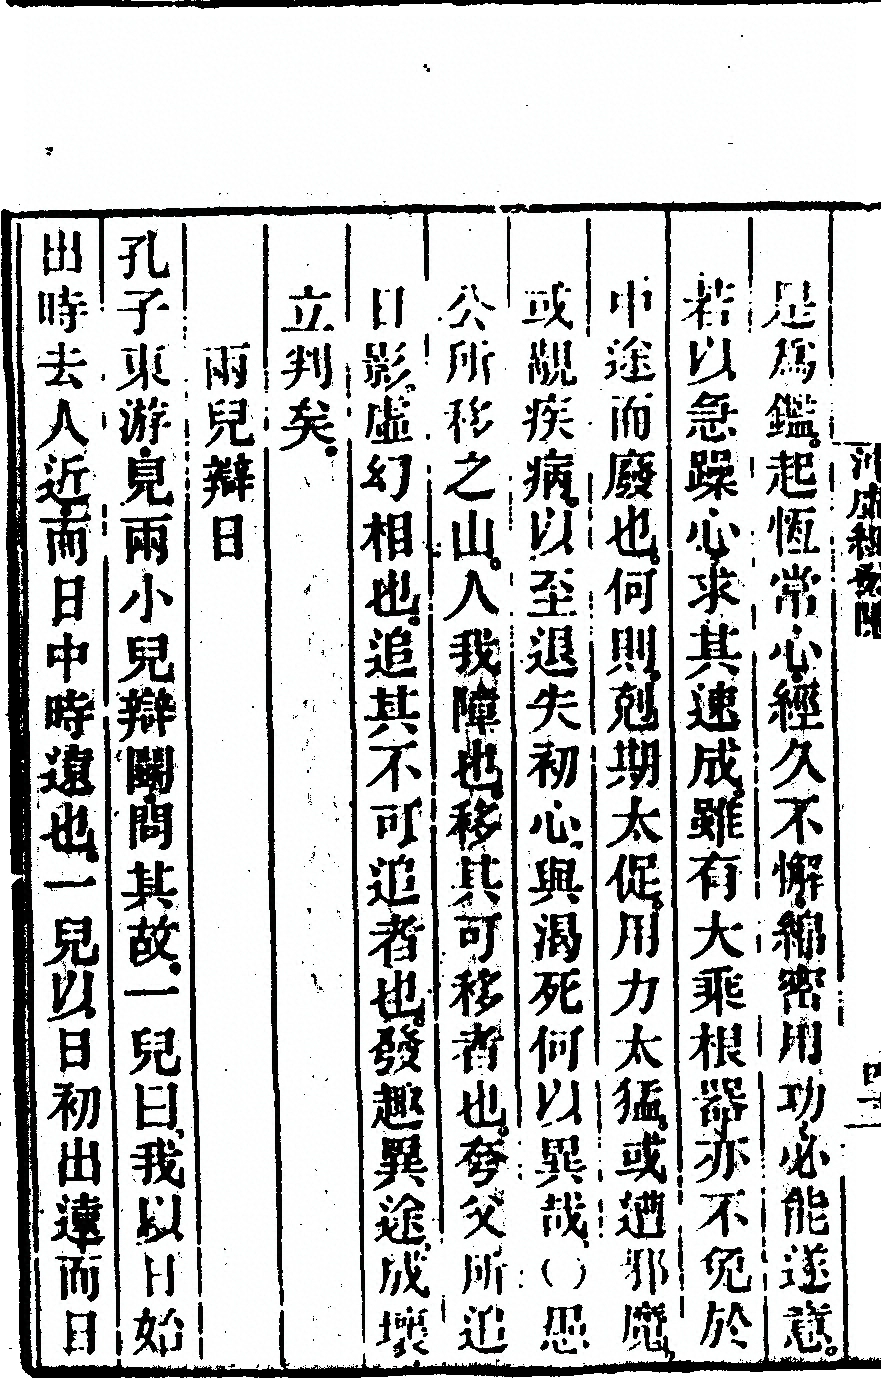 是爲鑑。起恆常心。經久不懈。綿密用功。必能遂意。
若以急躁心。求其速成。雖有大乘根器。亦不免於
中途而廢也。何則。剋期太促。用力太猛。或遭邪魔、
或覯疾病。以至退失初心。與渴死何以異哉。（）愚
公所移之山。人我障也。移其可移者也。夸父所追
日影。虛幻相也。追其不可追者也。發趣異途。成壞
立判矣。
兩兒辯日
孔子東游。見兩小兒辯鬭。問其故。一兒曰、我以日始
出時去人近。而日中時遠也。一兒以日初出遠。而日